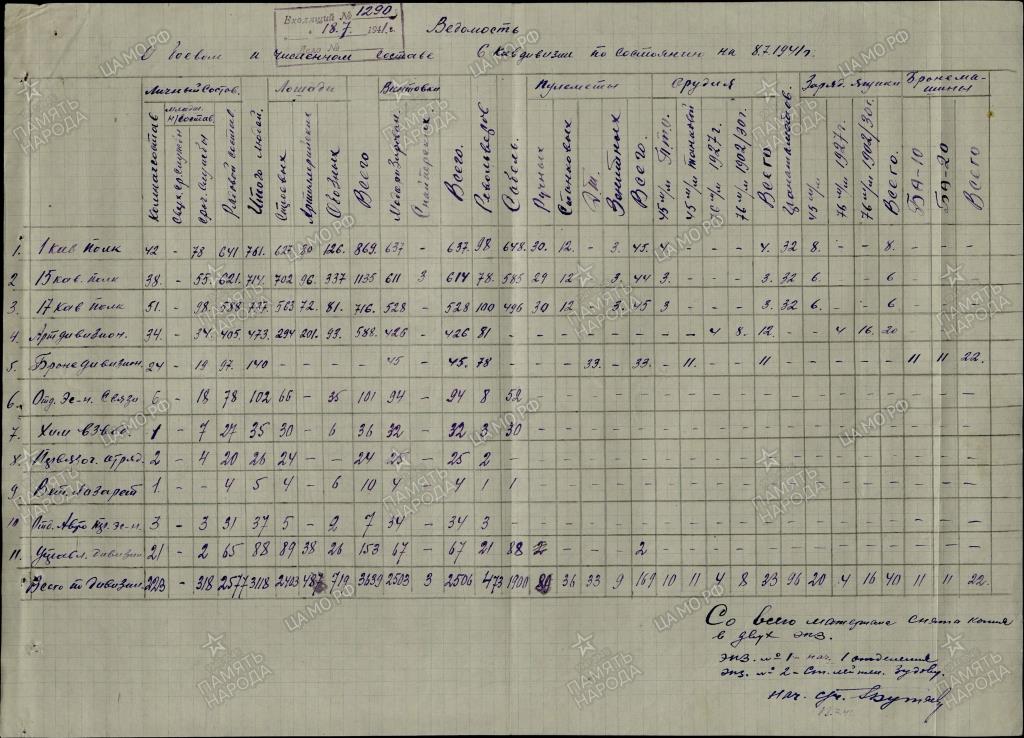 Входящий № 1290
18.7 1941 г.
Ведомость
О боевом и численном составе 6 кавдивизии по состоянию на 8.7.1941 г.
Личный состав. Лошади Винтовки Пулеметы Орудия Заряд. ящики Бронемашины
Комначсостав
Младш. н/состав
Сверхсрочн.
Сроч. службы
Рядовой состав
Итого людей.
Строевых
Артиллерийских
Обозных
Всего
Снайперских
Всего.
Револьверов
Сабель.
Ручных
Станковых
Д.т.
Зенитных
Всего.
45 м/м п.т.о.
45 м/м танковой
76 м/м 1927 г.
76 м/м 1902/30 г.
Всего
45 м/м
76 м/м 1927 г.
76 м/м 1902/30 г.
Всего.
БА-10
БА-20
Всего
1. 1 кав полк 42 - 78 641 761. 627 80 126. 869. 637 - 637. 98 648. 30. 12. - 3. 45. 4 - - - 4. 32 8. - - 8. - - -
2 15 кав. полк 38. - 55. 621. 714. 702 96. 337 1135 611 3 614 78. 585 29 12 - 3. 44 3. - - - 3. 32 6. - - 6 - - -
3. 17 кав полк 51. - 98. 588 737. 563 72. 81. 716. 528 - 528 100 496 30 12 - 3. 45 3 - - - 3. 32 6. - - 6 - - -
4. Артдивизион. 34. - 34. 405. 473. 294 201. 93. 588. 426 - 426 81 - - - - - - - - 4 8. 12. - - 4 16. 20 - - -
5. Бронедивизион. 24 - 19 97. 140 - - - - 45 - 45. 78 - - - 33. - 33. - 11. - - 11 - - - - - 11 11 22.
6. Отд. Эс-н. Связи 6 - 18 78 102 66 - 35 101 94 - 94 8 52 - - - - - - - - - - - - - - - - - -
7. Хим взвод. 1 - 7 27 35 30 - 6 36 32 - 32 3 30 - - - - - - - - - - - - - - - - - -
8. Перевяз. отряд. 2 - 4 20 26 24 - - 24 25 - 25 2 - - - - - - - - - - - - - - - - - - -
9 Вет. лазарет 1. - - 4 5 4 - 6 10 4 - 4 1 1 - - - - - - - - - - - - - - - - - -
10 Отд. Авто тр. Эс-н. 3 - 3 31 37 5 - 2 7 34 - 34 3 - - - - - - - - - - - - - - - - - - -
11. Управл. дивизии 21 - 2 65 88 89 38 26 153 67 - 67 21 88 2 - - - 2 - - - - - - - - - - - - -
Всего по дивизии. 223 - 318 2577 3118 2403 487 719. 3639 2503 3 2506 473 1900 89 36 33 9 169 10 11 4 8 33 96 20 4 16 40 11 11 22.
Со всего материала снята копия
в двух экз.
экз. № 1 - нач. 1 отделения
экз. № 2 - Ст. лейтен. Зудову.
нач.
ЦАМО.РФ
ПАМЯТЬ НАРОДА